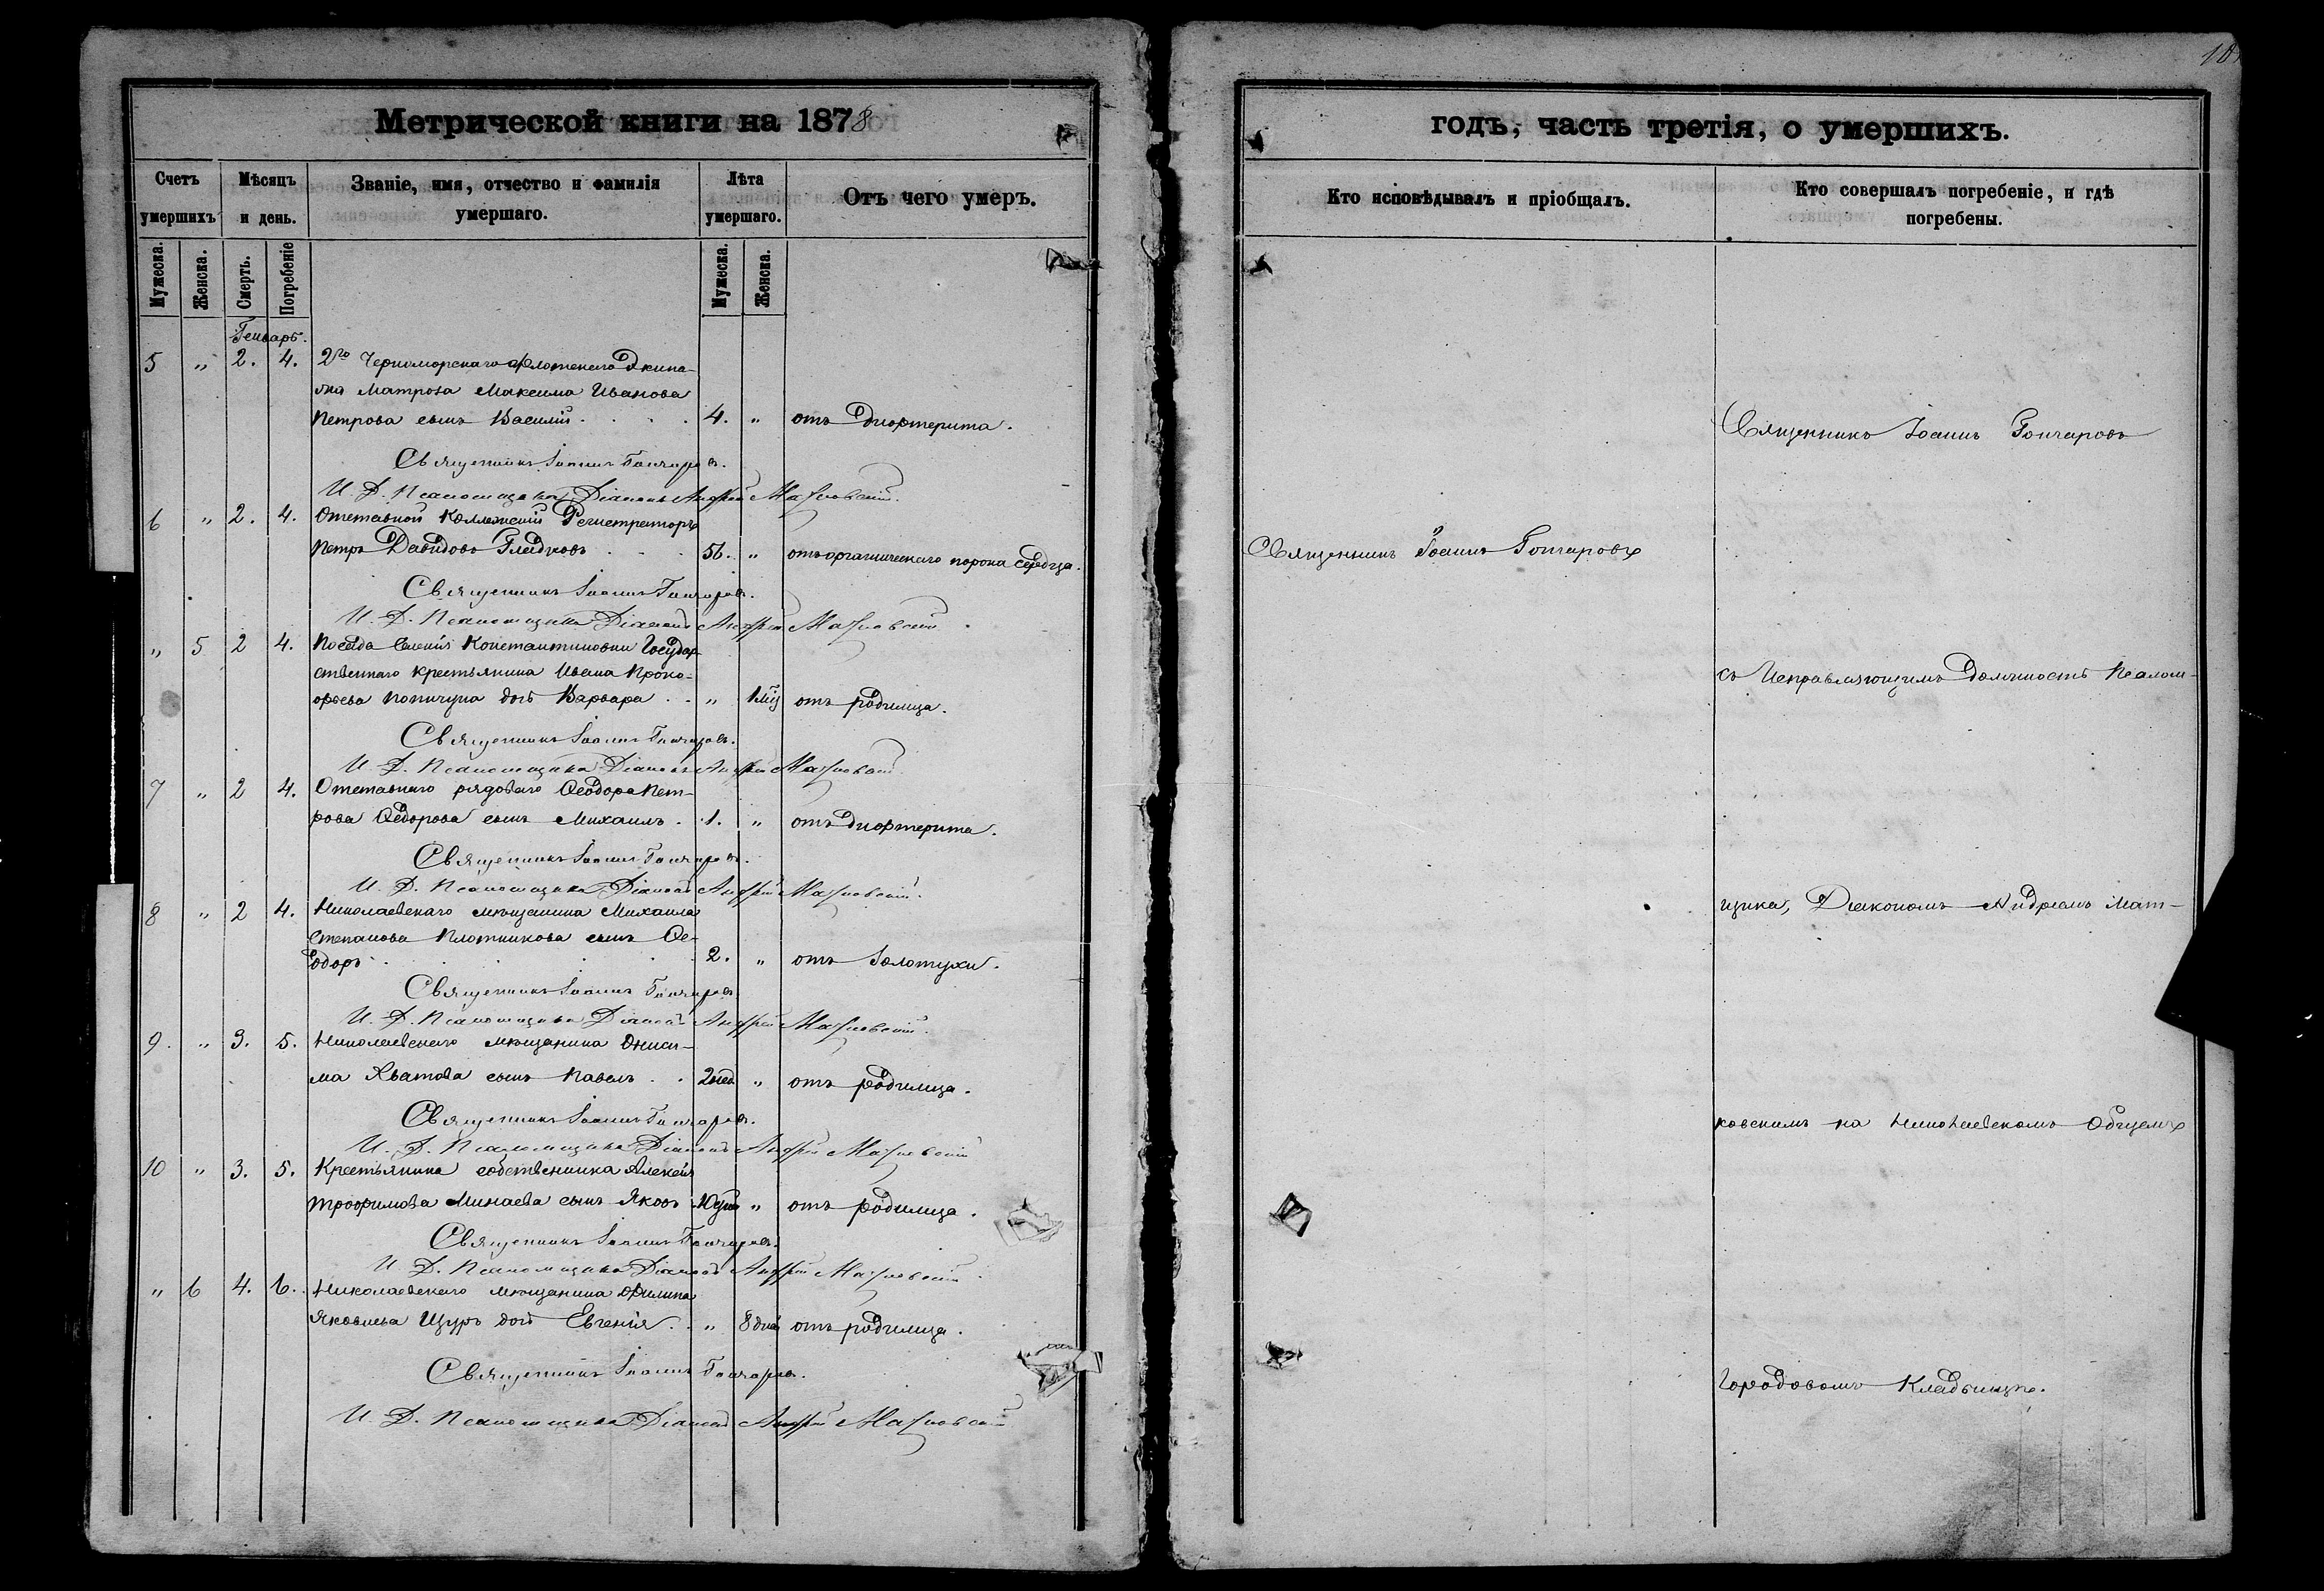 Метрической книги на 1878
Счетъ умершихъ
Мѣсяцъ и день.
Званіе, имя, отчество и фамилія умершаго.
Лѣта умершаго.
Отъ чего умеръ.
Мужеска.
Женска.
Смерть.
Погребеніе
Мужеска.
Женска.
Генварь.
5 " 2. 4. 2го Черноморскаго Флотскаго Экипа-
жа Матроса Максима Иванова
Петрова сынъ Василій 4. " отъ дифтерита.
Священникъ Іоаннъ Гончаровъ.
И. Д. Псаломщика Діаконъ Андрей Матковскій.
6 " 2. 4. Отставной Коллежскій Регистраторъ
Петръ Давидовъ Гладковъ 56. " отъ органическаго порока сердца.
Священникъ Іоаннъ Гончаровъ.
И. Д. Псаломщика Діаконъ Андрей Матковскій
" 5 2 4. Посада Константиновки Государ-
ственнаго крестьянина Ивана Проко-
фьева дочь Варвара " 1 мѣс отъ родимца.
Священникъ Іоаннъ Гончаровъ.
И. Д. Псаломщика Діаконъ Андрей Матковскій
7 " 2 4. Отставнаго рядоваго Ѳеодора Пет-
рова Ѳедорова сынъ Михаилъ 1. " отъ дифтерита.
Священникъ Іоаннъ Гончаровъ.
И. Д. Псаломщика Діаконъ Андрей Матковскій.
8 " 2 4. Николаевскаго мѣщанина Михаила
Степанова Плотникова сынъ Ѳе-
одоръ 2. " отъ золотухи.
Священникъ Іоаннъ Гончаровъ
И. Д. Псаломщика Діаконъ Андрей Матковскій.
9. " 3. 5. Николаевскаго мѣщанина Ониси-
ма Хватова сынъ Павелъ 2 нед " отъ родимца.
Священникъ Іоаннъ Гончаровъ.
И. Д. Псаломщика Діаконъ Андрей Матковскій
10 " 3. 5. Крестьянина собственника Алексѣя
Трофимова Минаева сынъ Яковъ " отъ родимца.
Священникъ Іоаннъ Гончаровъ.
И. Д. Псаломщика Діаконъ Андрей Матковскій
" 6 4. 6. Николаевскаго мѣщанина Филипа
Яковлева Щуръ дочь Евгенія " 8 дней отъ родимца.
Священникъ Іоаннъ Гончаровъ.
И. Д. Псаломщика Діаконъ Андрей Матковскій
годъ, часть третія, о умершихъ.
Кто исповѣдывалъ и пріобщалъ.
Кто совершалъ погребеніе, и гдѣ погребены.
Священникъ Іоаннъ Гончаровъ
Священникъ Іоаннъ Гончаровъ
съ Исправляющимъ Должность Псалом-
щика, Діакономъ Андреемъ Мат-
ковскимъ на Николаевскомъ Общемъ
Городовомъ Кладбищѣ.